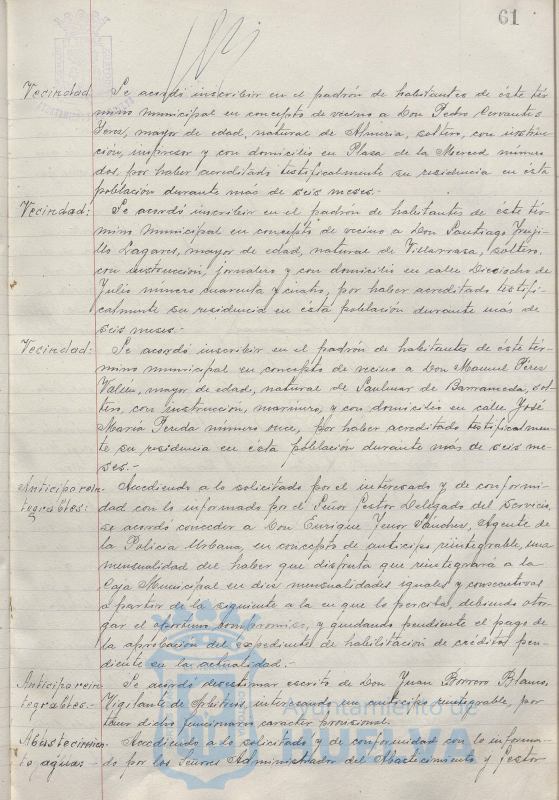 61
Vecindad. Se acordó inscribir en el padrón de habitantes de éste tér-
mino municipal en concepto de vecino a Don Pedro Cervantes
mayor de edad, natural de Almeria, soltero, con instruc-
ción, impresor y con domicilio en Plaza de la Merced número
dos, por haber acreditado testificalmente su residencia en ésta
población durante más de seis meses.-
Vecindad: Se acordó inscribir en el padrón de habitantes de éste tér-
mino municipal en concepto de vecino a Don Santiago Truji-
llo Lagares, mayor de edad, natural de Villarrasa, soltero,
con instrucción, jornalero y con domicilio en calle Dieciocho de
Julio número cuarenta y cuatro, por haber acreditado testifi-
calmente su residencia en ésta población durante más de
seis meses.-
Vecindad: Se acordó inscribir en el padrón de habitantes de éste tér-
mino municipal en concepto de vecino a Don Manuel Pérez
mayor de edad, natural de Sanlucar de Barrameda, sol-
tero, con instrucción, marinero, y con domicilio en calle José
María Pereda número once, por haber acreditado testificalmen-
te su residencia en ésta población durante más de seis me-
ses.-
Anticipo rein- Accediendo a lo solicitado por el interesado y de conformi-
tegrables: dad con lo informado por el Señor Gestor Delegado del Servicio,
se acordó conceder a Don Enrique Sánchez, Agente de
la Policía Urbana, en concepto de anticipo reintegrable, una
mensualidad del haber que disfruta que reintegrará a la
Caja Municipal en diez mensualidades iguales y consecutivas
a partir de la siguiente a la en que lo perciba, debiendo otor-
gar el oportuno compromiso, y quedando pendiente el pago de
la aprobación del expediente de habilitación de créditos pen-
diente en la actualidad.-
Anticipo rein- Se acordó desestimar escrito de Don Juan Borrero Blanco,
tegrables.- Vigilante de Arbitrios, interesando un anticipo reintegrable, por
tener dicho funcionario caracter provisional.
Abastecimien- Accediendo a lo solicitado y de conformidad con lo informa-
to aguas.- do por los Señores Administrador del Abastecimiento y Gestor
Ayuntamiento de
HUELVA